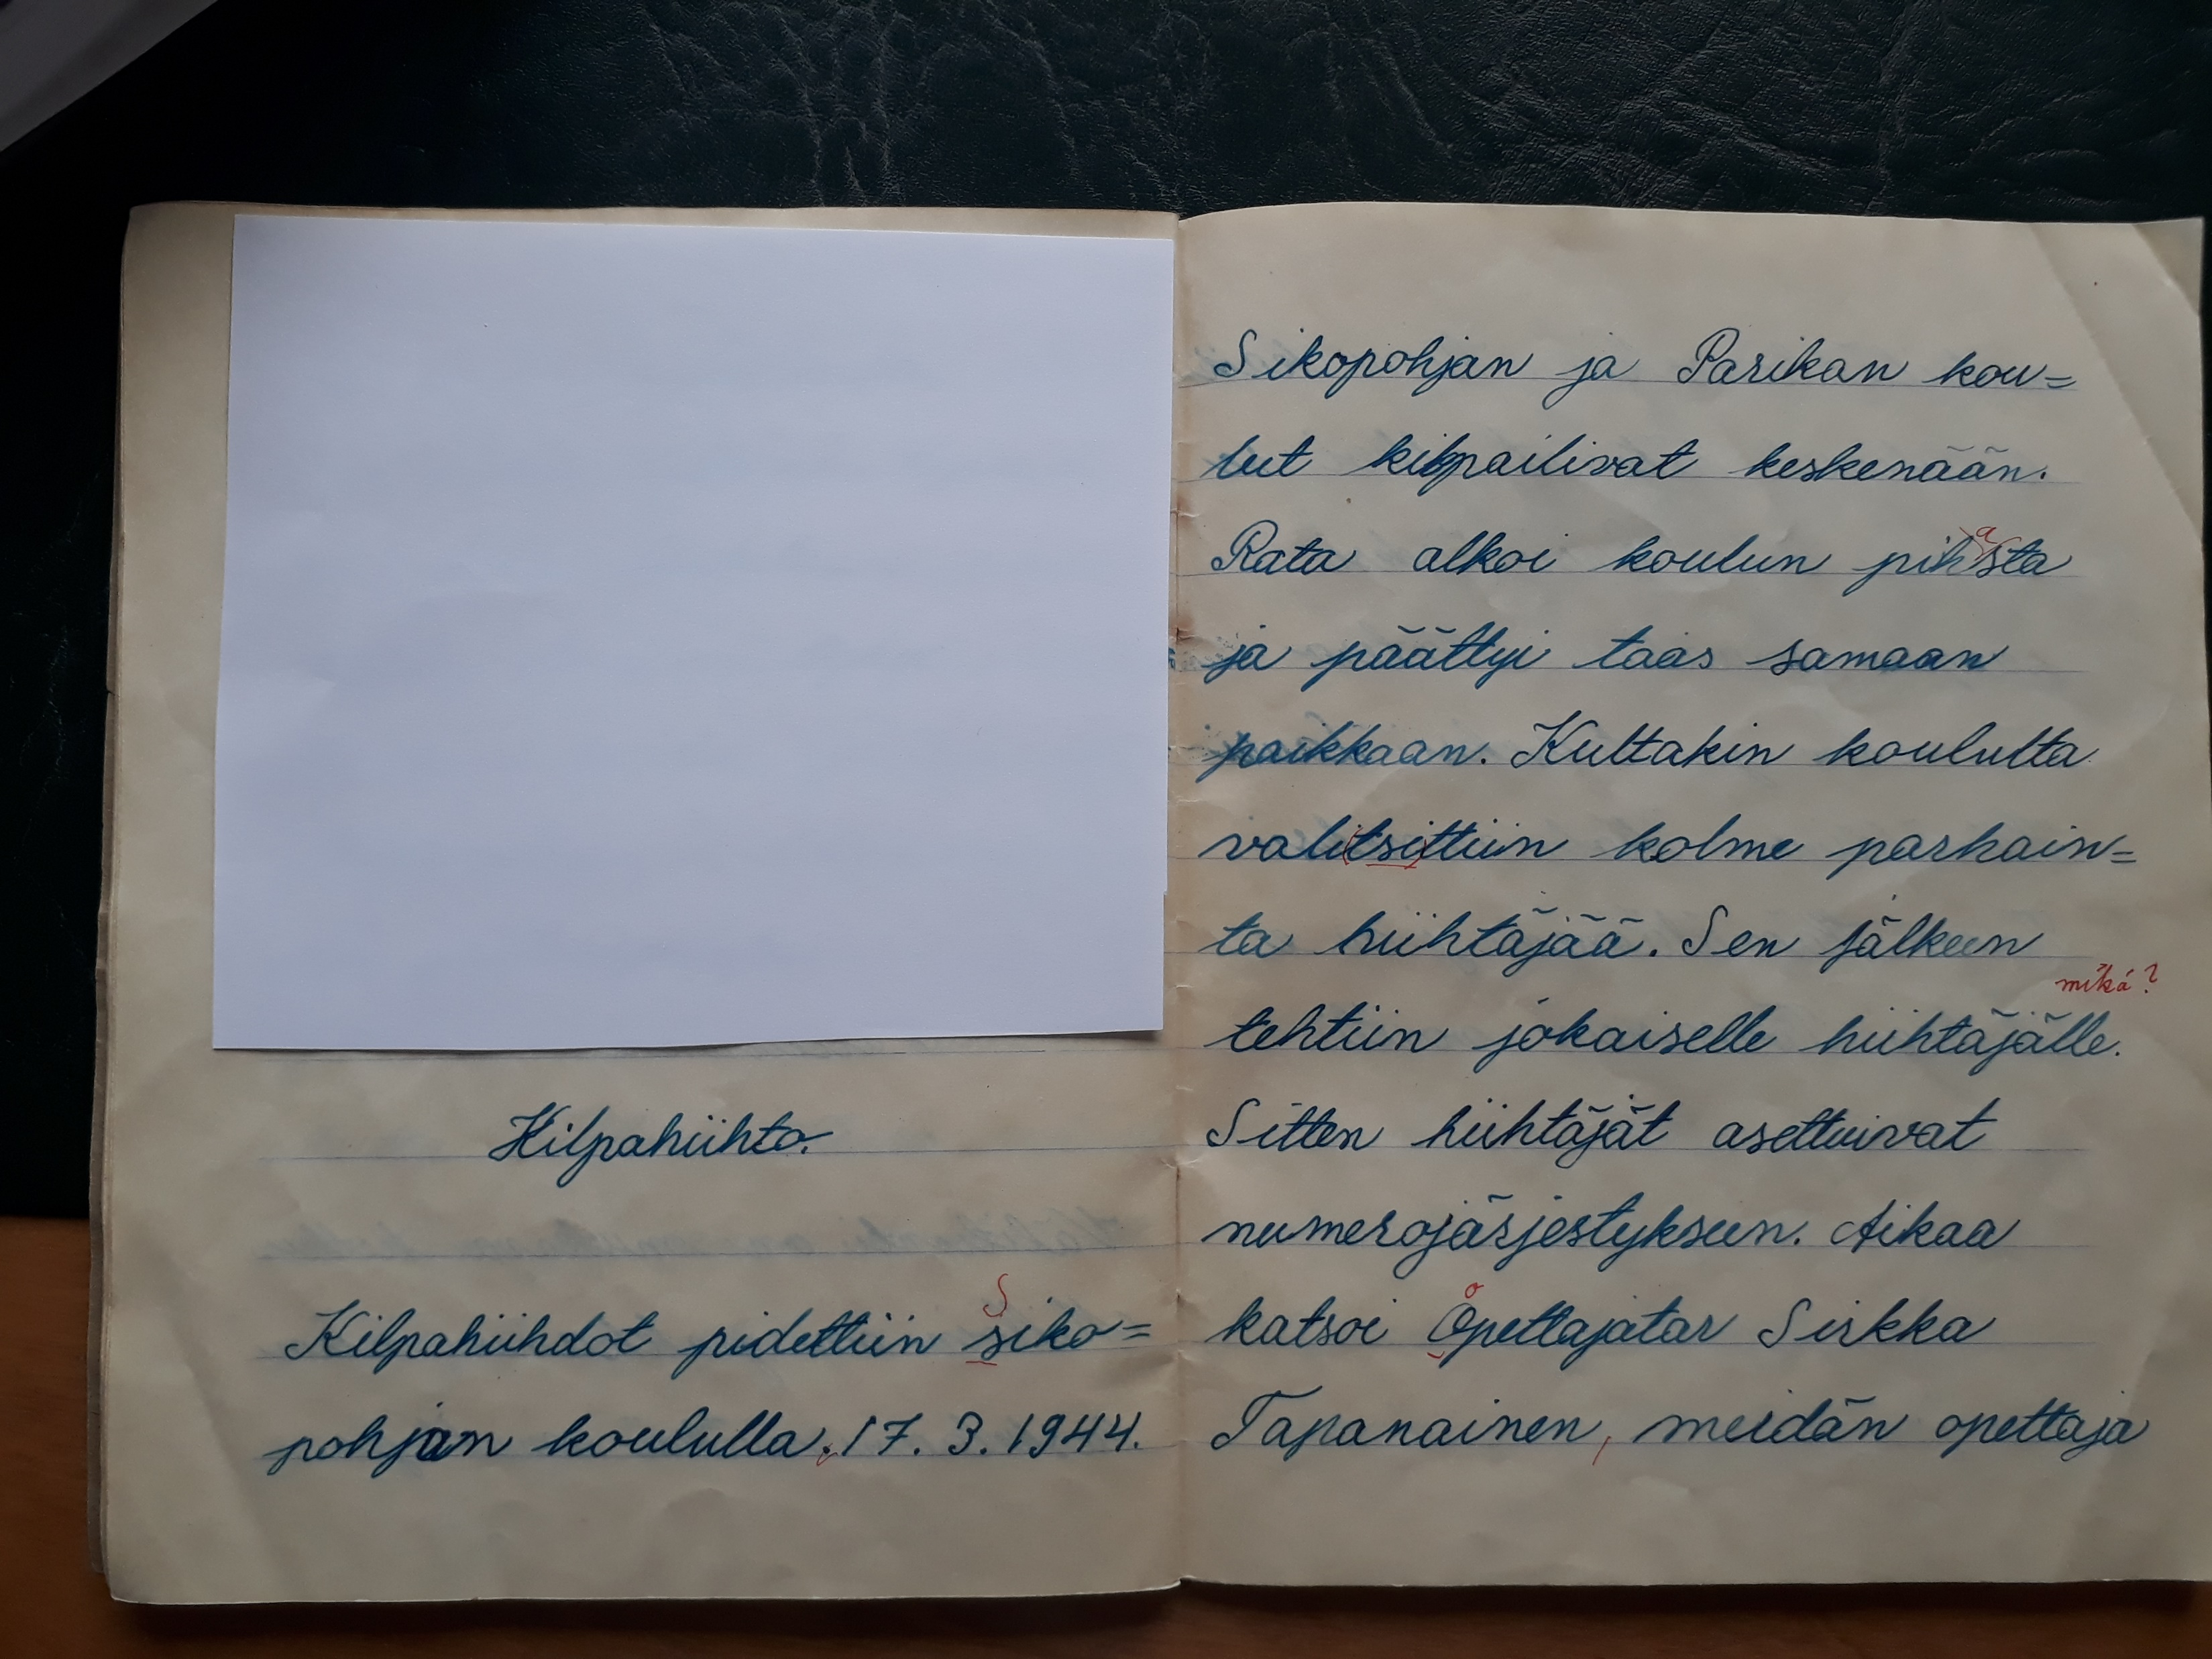 Kilpahiihto.
S
Kilpahiihdot pidettiin siko=
pohjan koululla. 17. 3. 1944.
Sikopohjan ja Parikan kou=
lut kilpailivat keskenään.
a
Rata alkoi koulun pihsta
ja päättyi taas samaan
paikkaan. Kultakin koululta
valitsittiin kolme parhain=
ta hiihtäjää. Sen jälkeen
mikä?
tehtiin jokaiselle hiihtäjälle.
Sitten hiihtäjät asettuivat
numerojärjestykseen. Aikaa
o
katsoi Opettajatar Sirkka
Tapanainen, meidän opettaja